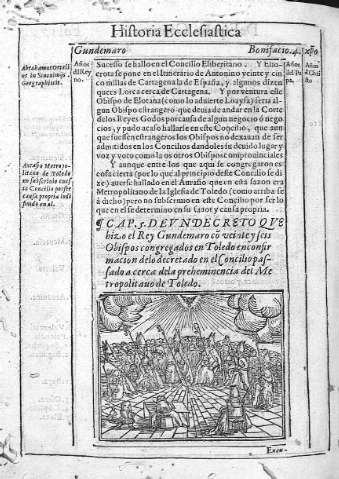 Historia Ecclesiastica
Gundemaro
Bonifacio. 4.
Años
del Rey
no.
Años
del Pa
pa.
Años
d Christo
Sucesso se hallo en el Concilio Eliberitano. Y Elio-
crota se pone en el Itinerario de Antonino veinte y cin
co millas de Cartagena la de España, y algunos dizen
que es Lorca cerca de Cartagena. Y por ventura este
Obispo de Elotana (como lo advierte Loaysa) seria al-
gun Obispo estrangero que devia de andar en la Corte
de los Reyes Godos por causa de algun negocio ò nego-
cios, y pudo acaso hallarse en este Concilio, que aun
que fuessen estrangeros los Obispos no dexavan de ser
admitidos en los Concilios dandoles su devido lugar y
voz y voto como la os otros Obispos comprovinciales
Y aunque entre los que aqui se congregaron es
cosa cierta (por lo que al principio deste Concilio se di-
ze) averse hallado en el Aurasio que en esta sazon era
Metropolitano de la Iglesia de Toledo (como arriba se
à dicho) pero no subscrivio en este Concilio por ser lo
que en el se determino en su favor y causa propria.
Aurasio Metropo-
litano de Toledo
no subscrivio en es-
te Concilio por ser
causa propria
¶ CAP. 5. DE VN DECRETO QVE
hizo el Rey Gundemaro cō veinte y seis
Obispos congregados en Toledo en confir
macion de lo decretado en el Concilio pas-
sado acerca de la preheminencia del Me-
tropolitano de Toledo.